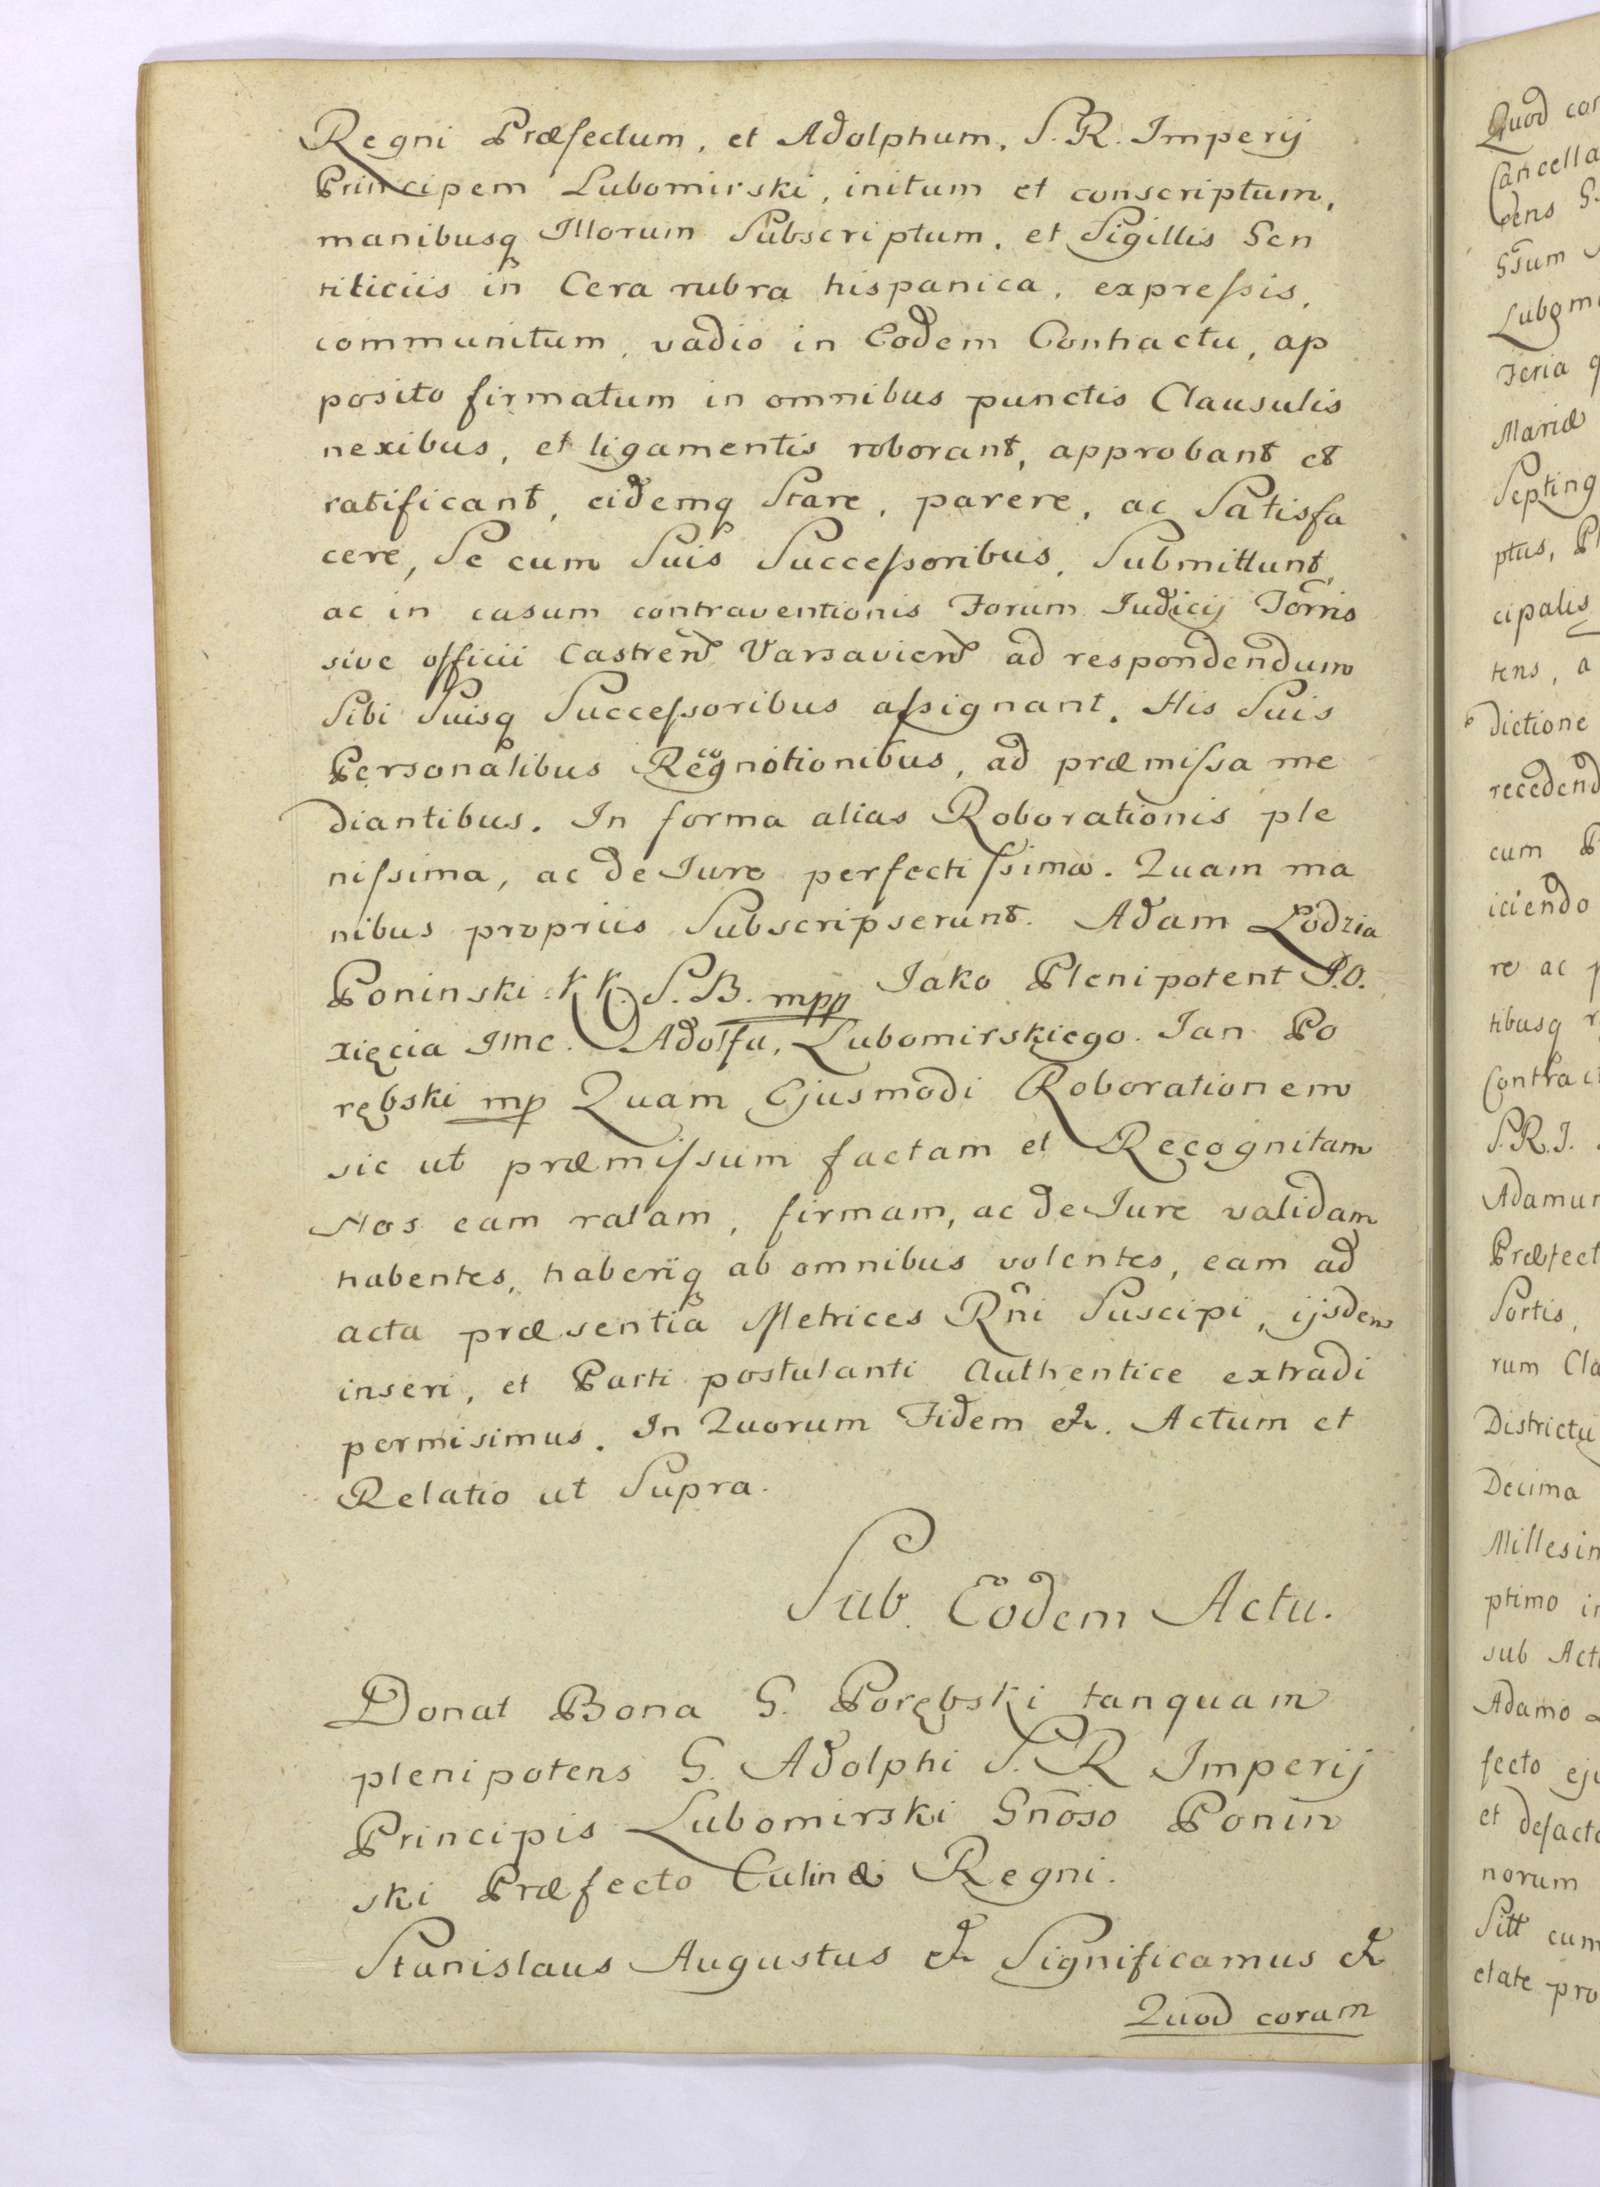 Regni Præfectum, et Adolphum, S. R. Imperij
Principem Lubomirski, initum et conscriptum,
manibusq Illorum Subscriptum, et Sigillis Gen
tiliciis in Cera rubra hispanica, expressis,
communitum, vadio in Eodem Contractu, ap
posito firmatum in omnibus punctis Clausulis
nexibus, et ligamentis roborant, approbant et
ratificant, eidemq Stare, parere, ac Satisfa
cere, Se cum Suis Successoribus, Submittunt,
ac in casum contraventionis Forum Judicij Torris
sive officii Castren Varsavien ad respondendum
Sibi Suisq Successoribus assignant. His Suis
Personalibus Recognotionibus, ad præmissa me
diantibus. In forma alias Roborationis ple
nissima, ac de Jure perfectissima. Quam ma
nibus propriis Subscripserunt. Adam Łodzia
Poninski K K. S. B. mpp Jako Plenipotent J.O.
xięcia Jmc. Adolfa, Lubomirskiego. Jan Po
rębski mp Quam Ejusmodi Roborationem
sic ut præmissum factam et Recognitam
Nos eam ratam, firmam, ac de Jure validam
habentes, haberiq ab omnibus volentes, eam ad
acta præsentia Metrices Rñi Suscipi, ijsdem
inseri, et Parti postulanti Authentice extradi
permisimus. In Quorum Fidem &. Actum et
Relatio ut Supra.
Sub Eodem Actu.
Donat Bona G. Porębski tanquam
plenipotens G. Adolphi S. R Imperij
Principis Lubomirski Gñoso Ponin
ski Præfecto Culinæ Regni.
Stanislaus Augustus & Significamus &
Quod coram
Quod cor
Cancella
Lubomi
Feria q
Mariæ
Septing
ptus, P
cipalis
tens, a
dictione
recedend
cum P
iciendo
re ac p
tibusq r
Contract
S.R.I.
Adamum
Præfect
Sortis,
rum Cla
Districtu
Decima
Millesim
ptimo in
sub Act
Adamo
fecto eju
et defacto
norum
cum
etate pro